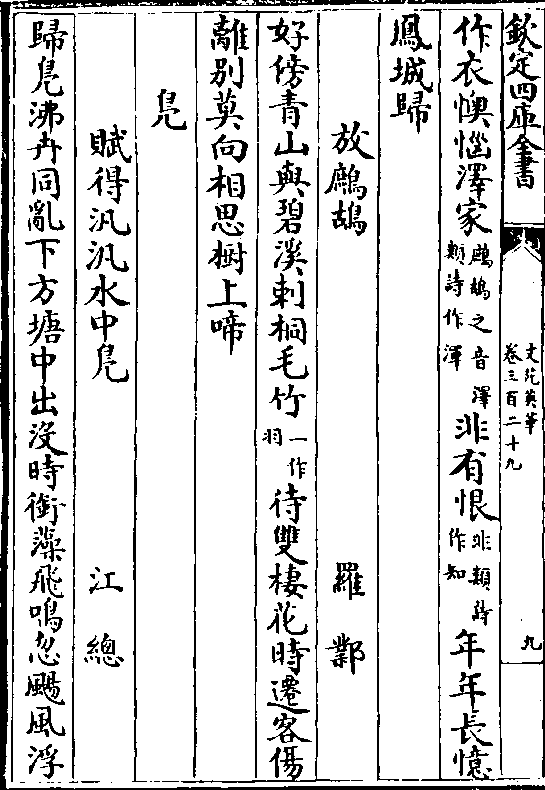 欽定四庫全書
文苑英華
卷三百二十九
九
作衣懊惱澤家鷓鴣之音澤類詩作渾非有恨非類詩作知年年長憶
鳳城歸
放鷓鴣 羅鄴
好傍青山與碧溪刺桐毛竹一作羽待雙棲花時遷客傷
離別莫向相思樹上啼
鳬
賦得汎汎水中鳬 江總
歸鳬沸卉同亂下方塘中出沒時銜藻飛鳴忽颺風浮